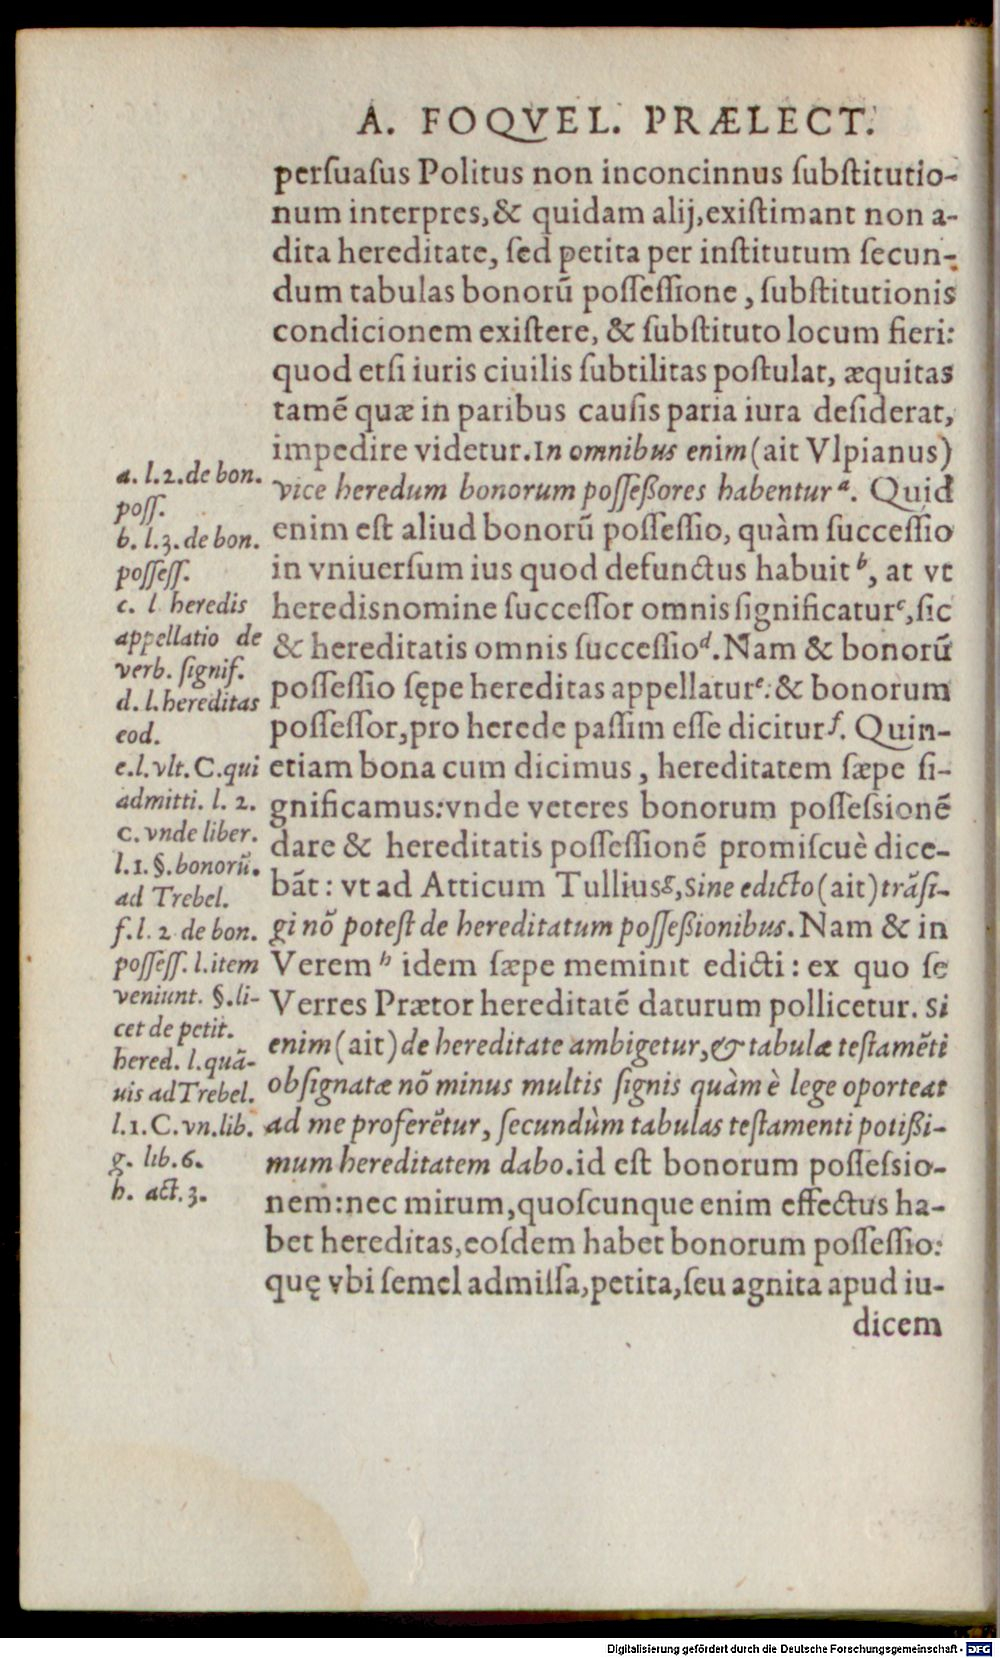 A. FOQVEL. PRÆLECT.
perſuaſus Politus non inconcinnus ſubſtitutio-
num interpres, & quidam alij, exiſtimant non a-
dita hereditate, ſed petita per inſtitutum ſecun-
dum tabulas bonorũ poſſeſſione, ſubſtitutionis
condicionem exiſtere, & ſubſtituto locum fieri:
quod etſi iuris ciuilis ſubtilitas poſtulat, æquitas
tamẽ quæ in paribus cauſis paria iura deſiderat,
impedire videtur. In omnibus enim (ait Vlpianus)
vice heredum bonorum poſſeßores habentur a. Quid
enim eſt aliud bonorũ poſſeſſio, quàm ſucceſſio
in vniuerſum ius quod defunctus habuit b, at vt
heredis nomine ſucceſſor omnis ſignificatur c, ſic
& hereditatis omnis ſucceſſio d. Nam & bonorũ
poſſeſſio ſępe hereditas appellatur e: & bonorum
poſſeſſor, pro herede paſſim eſſe dicitur f. Quin-
etiam bona cum dicimus, hereditatem ſæpe ſi-
gnificamus: vnde veteres bonorum poſſeſsionẽ
dare & hereditatis poſſeſſionẽ promiſcuè dice-
bãt: vt ad Atticum Tullius g, Sine edicto (ait) trãſi-
gi nõ poteſt de hereditatum poſſeßionibus. Nam & in
Verem h idem ſæpe meminit edicti: ex quo ſe
Verres Prætor hereditatẽ daturum pollicetur. Si
enim (ait) de hereditate ambigetur, & tabulæ teſtamẽti
obſignatæ nõ minus multis ſignis quàm è lege oporteat
ad me proferẽtur, ſecundùm tabulas teſtamenti potißi-
mum hereditatem dabo. id eſt bonorum poſſeſsio-
nem: nec mirum, quoſcunque enim effectus ha-
bet hereditas, eoſdem habet bonorum poſſeſſio:
quę vbi ſemel admiſſa, petita, ſeu agnita apud iu-
dicem
a. l.2. de bon.
poſſ.
b. l.3. de bon.
poſſeſſ.
c. l heredis
appellatio de
verb. ſignif.
d. l. hereditas
eod.
e. l. vlt. C. qui
admitti. l. 2.
C. vnde liber.
l.1. §. bonorũ.
ad Trebel.
f. l. 2 de bon.
poſſeſſ. l. item
veniunt. §. li-
cet de petit.
hered. l. quã-
uis ad Trebel.
l.1. C. vn. lib.
g. lib. 6.
h. act. 3.
Digitalisierung gefördert durch die Deutsche Forschungsgemeinschaft - DFG